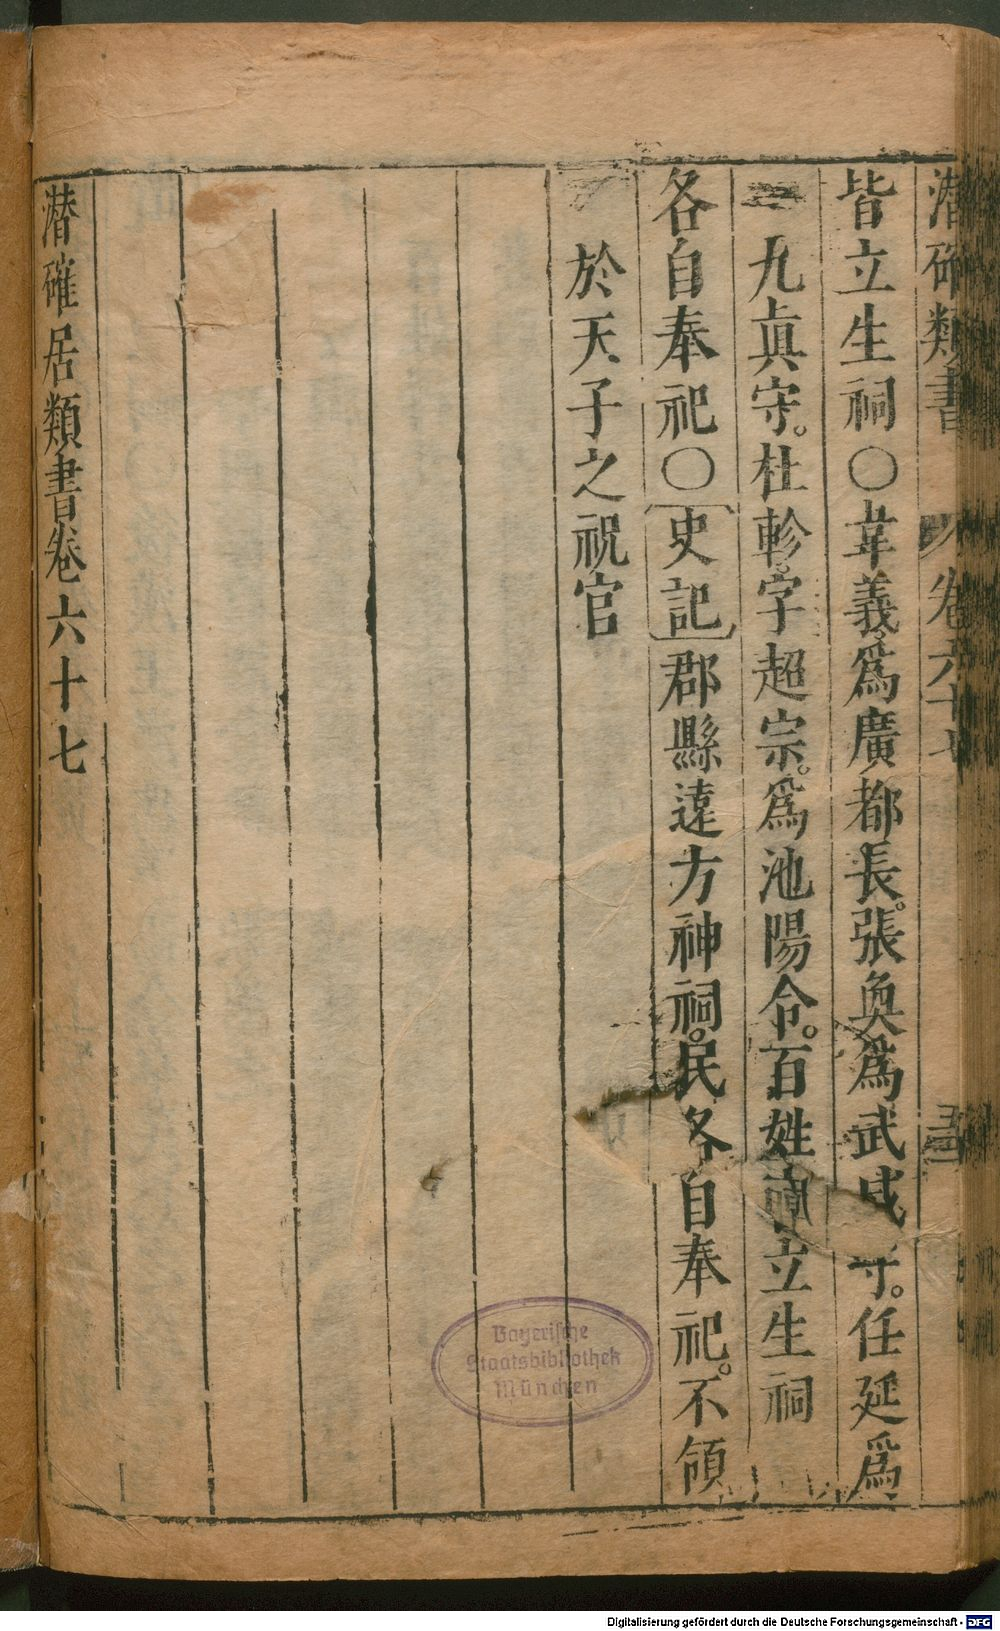 潛確類書 卷六十七
皆立生祠〇韋義爲廣都長張奐爲武威守任延爲
九眞守杜軫字超宗爲池陽令百姓立生祠
各自奉祀〇史記郡縣遠方神祠民各自奉祀不領
於天子之祝官
潛確居類書卷六十七
Bayerische
Staatsbibliothek
München
Digitalisierung gefördert durch die Deutsche Forschungsgemeinschaft - DFG